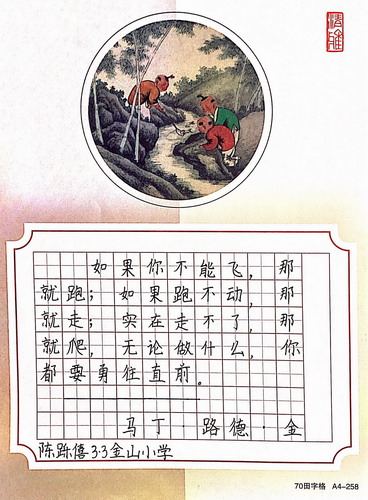 如果你不能飞，那
就跑；如果跑不动，那
就走；实在走不了，那
就爬，无论做什么，你
都要勇往直前。
马丁·路德·金
陈跞僖3.3金山小学
70田字格 A4-258